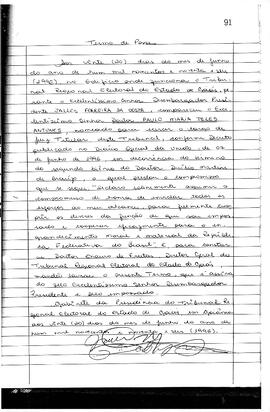 91
Termo de Posse
Aos vinte (20) dias do mês de junho
do ano de hum mil novecentos e noventa e seis
(1996), no Edifício onde funciona o Tribu-
nal Regional Eleitoral do Estado de Goiás, pe-
rante o Excelentíssimo Senhor Desembargador Presi-
dente JALLES FERREIRA DA COSTA, compareceu o Exce-
lentíssimo Senhor Doutor PAULO MARIA TELES
ANTUNES, nomeado para exercer o cargo de
Juiz Titular deste Tribunal, conforme Decreto
publicado no Diário Oficial da União de 03
de junho de 1996, em decorrência do término
do segundo biênio do Doutor
de Araújo, o qual prestou o compromisso
que se segue: "Declaro solenemente assumir o
compromisso de honra de
esforços ao meu alcance para fielmente cum-
prir os deveres da função de que sou empos-
sado e cooperar eficazmente para o en-
grandecimento moral e material da Repúbli-
ca Federativa do Brasil". E, para constar,
eu Doutor de Freitas Diretor Geral do
Tribunal Regional Eleitoral do Estado de Goiás
mandei lavrar o presente Termo, que é assina-
do pelo Excelentíssimo Senhor Desembargador
Presidente e pelo empossado.
Gabinete da Presidência do Tribunal Re-
gional Eleitoral do Estado de Goiás, em Goiânia,
aos vinte (20) dias do mês de junho do ano de
hum mil novecentos e noventa e seis (1996).